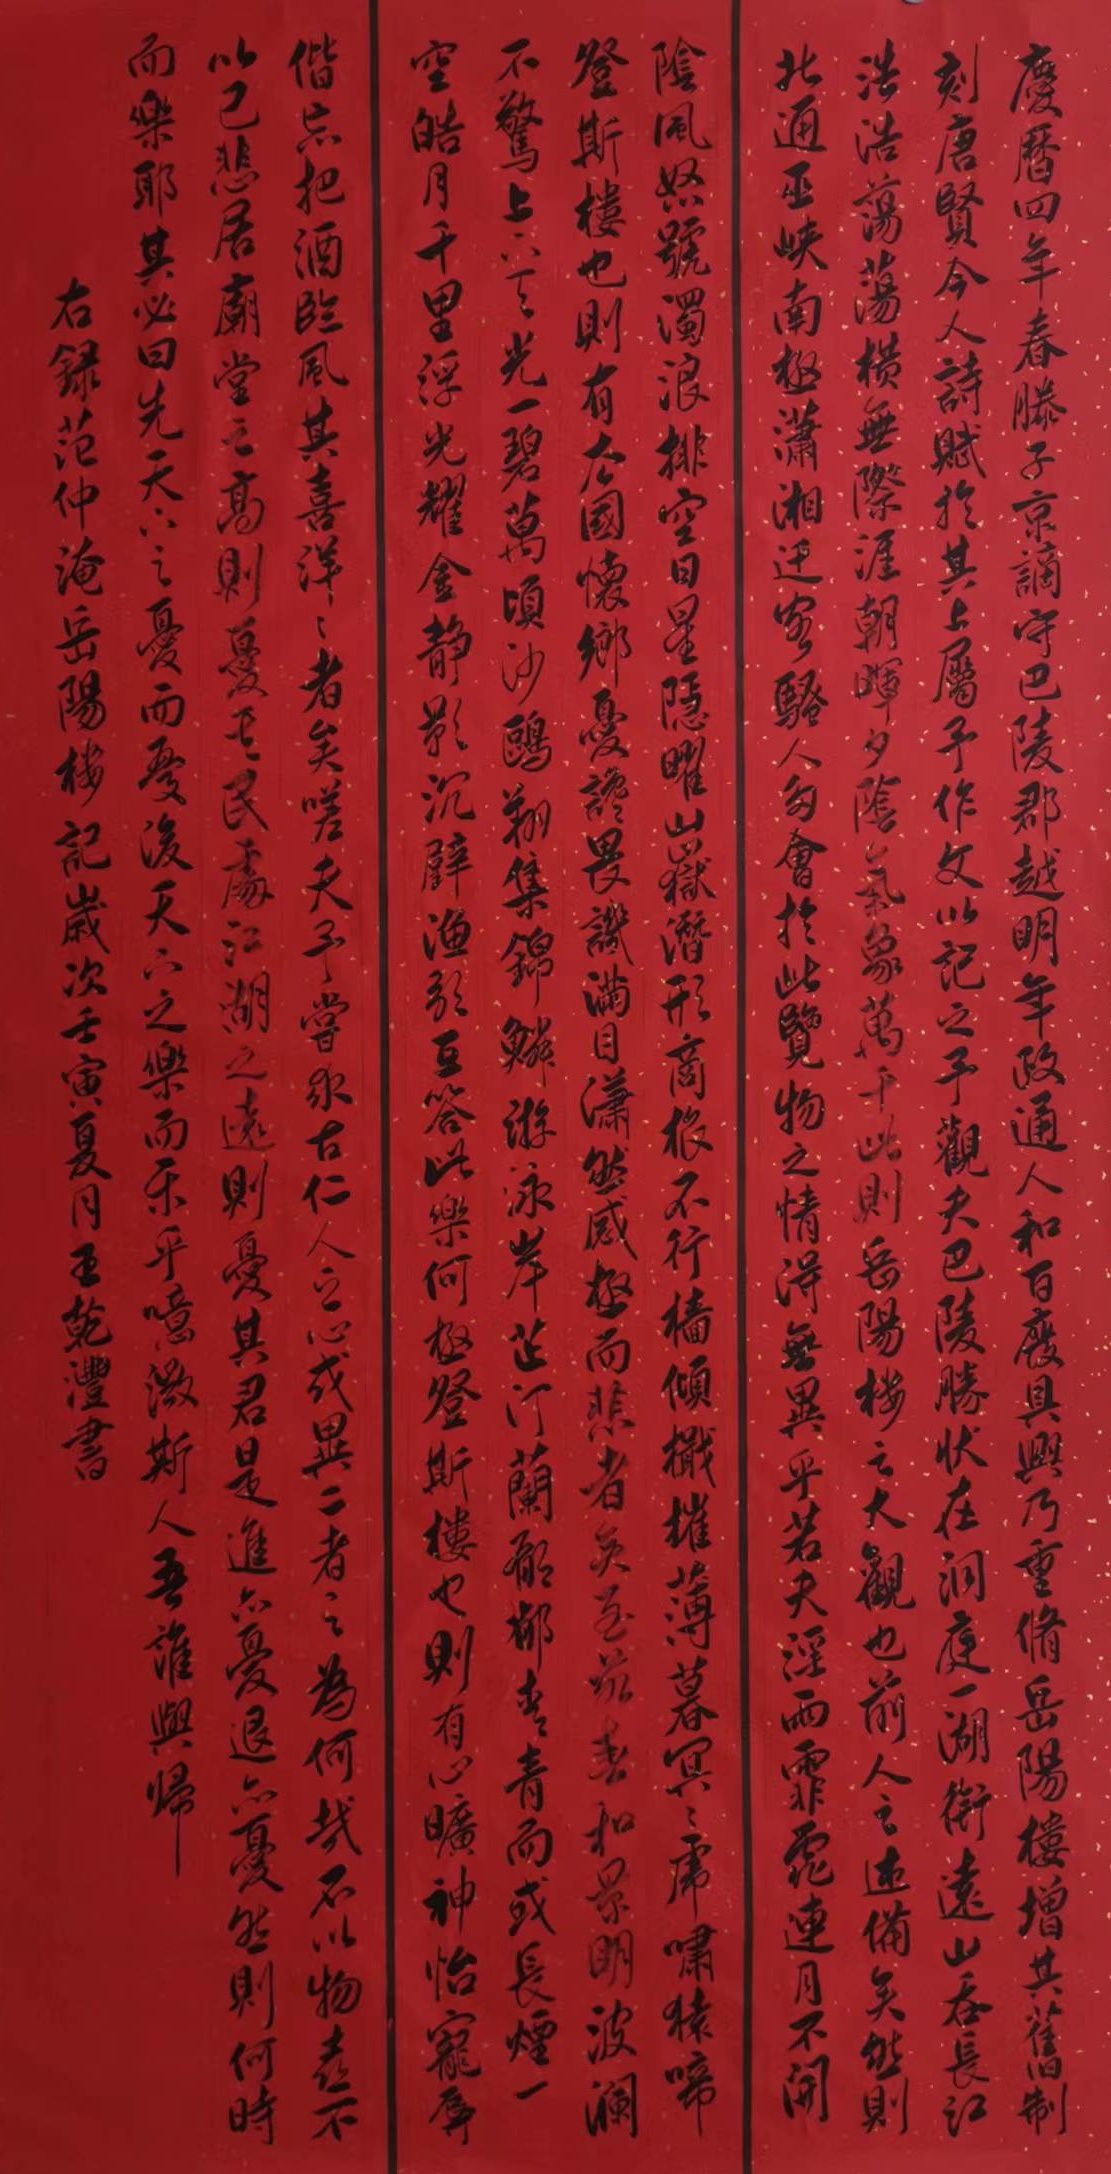 慶曆四年春滕子京謫守巴陵郡越明年政通人和百廢具興乃重脩岳陽樓增其舊制
刻唐賢今人詩賦於其上屬予作文以記之予觀夫巴陵勝狀在洞庭一湖銜遠山吞長江
浩浩蕩蕩橫無際涯朝暉夕陰氣象萬千此則岳陽樓之大觀也前人之述備矣然則
北通巫峽南極瀟湘遷客騷人多會於此覽物之情得無異乎若夫淫雨霏霏連月不開
陰風怒號濁浪排空日星隱曜山嶽潛形商旅不行檣傾檝摧薄暮冥〻虎嘯猿啼
登斯樓也則有去國懷鄉憂讒畏譏滿目瀟然感極而悲者矣至若春和景明波瀾
不驚上下天光一碧萬頃沙鷗翔集錦鱗游泳岸芷汀蘭郁郁青青而或長煙一
空皓月千里浮光耀金靜影沉璧漁歌互答此樂何極登斯樓也則有心曠神怡寵辱
偕忘把酒臨風其喜洋〻者矣嗟夫予嘗求古仁人之心或異二者之為何哉不以物喜不
以己悲居廟堂之高則憂其民處江湖之遠則憂其君是進亦憂退亦憂然則何時
而樂耶其必曰先天下之憂而憂後天下之樂而樂乎噫微斯人吾誰與歸
右録范仲淹岳陽樓記歲次壬寅夏月王乾灃書